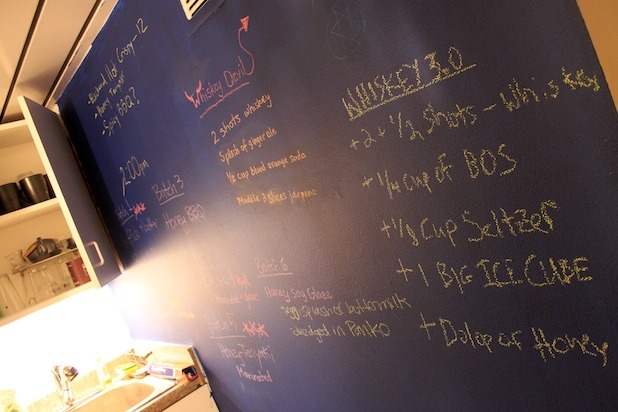 Crispy - 12
Spicy BBQ?
2:00pm
Batch 3
Honey BBQ
Whiskey Devil
2 shots whiskey
Splash of ginger ale
1/2 cup blood orange soda
Muddle 2 slices jalepeno
Batch 6
Honey Soy Glaze
egg splasher buttermilk
dredged in Panko
Honey Teriyaki
Marinated
WHISKEY 3.0
+ 2 + 1/2 Shots - Whiskey
+ 1/4 Cup of BOS
+ 1/8 Cup Seltzer
+ 1 BIG ICE CUBE
+ Dolop of Honey